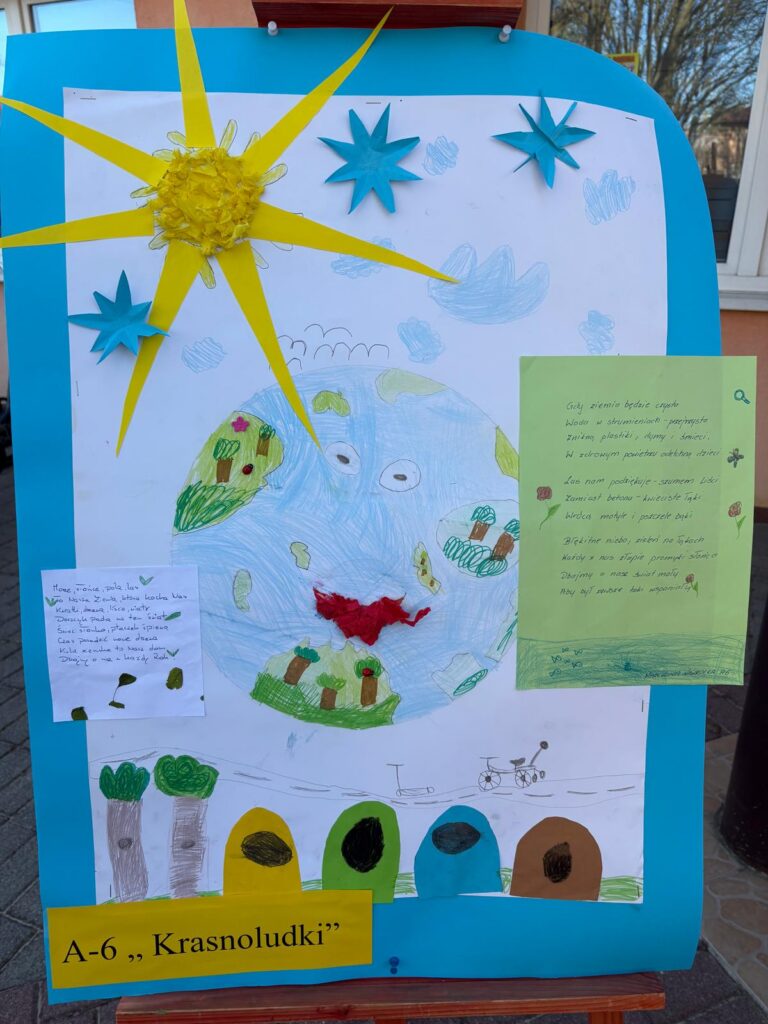 Morze, słońce, pola, las
to Nasza Ziemia, która kocha Was
Kwiatki, drzewa, liście, wiatr
Deszczyk pada na ten świat
Świeci słonko, ptaszek śpiewa
Czas posadzić nowe drzewa
Kula ziemska to nasz dom
Dbajmy o nią z każdej
Gdy ziemia będzie czysta
Woda w strumieniach - przejrzysta
Znikną plastiki, dymy i śmieci.
W zdrowym powietrzu odetchną dzieci
Las nam podziękuje - szumem liści
Zamiast betonu - kwieciste łąki
Wrócą motyle i pszczele bąki
Błękitne niebo, zieleń na łąkach
Każdy z nas złapie promyki słońca
Dbajmy o nasz świat mały
Aby był zawsze taki wspaniały
A-6 „ Krasnoludki”